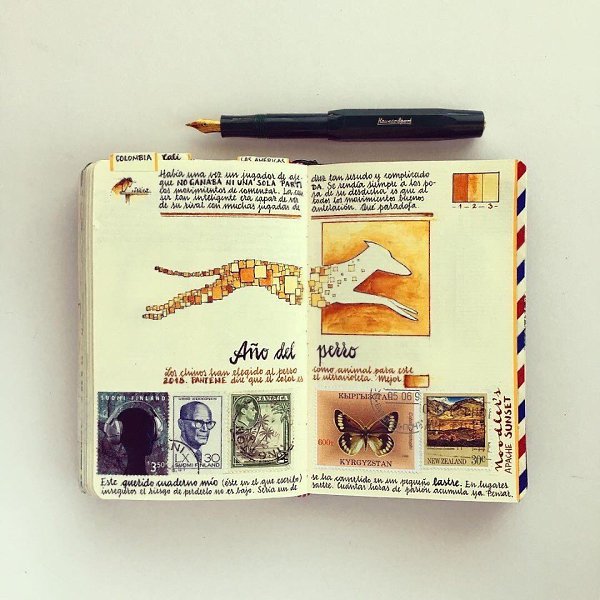 Kaweco Sport
COLOMBIA Cali LAS AMÉRICAS
Había una vez un jugador de aje- drez tan sesudo y complicado
que NO GANABA NI UNA SOLA PARTI DA. Se rendía siempre a los po-
cos movimientos de comenzar. La cau sa de su desdicha es que al
ser tan inteligente era capaz de ver todos los movimientos buenos
de su rival con muchas jugadas de antelación. Qué paradoja.
-1-2-3-
Año del perro
Los chinos han elegido al perro como animal para este
2018. PANTONE dice que el color es el ultravioleta. Mejor
SUOMI FINLAND
3,50
LX 1,30
SUOMI FINLAND
JAMAICA
КЫРГЫЗСТАН
05 06 9
600т
KYRGYZSTAN
NEW ZEALAND 30c
Noodler's
APACHE SUNSET
Este querido cuaderno mío (éste en el que escribo) se ha convertido en un pequeño lastre. En lugares
inseguros el riesgo de perderlo no es bajo. Sería un de sastre. Cuántas horas de pasión acumula ya. Pensar.